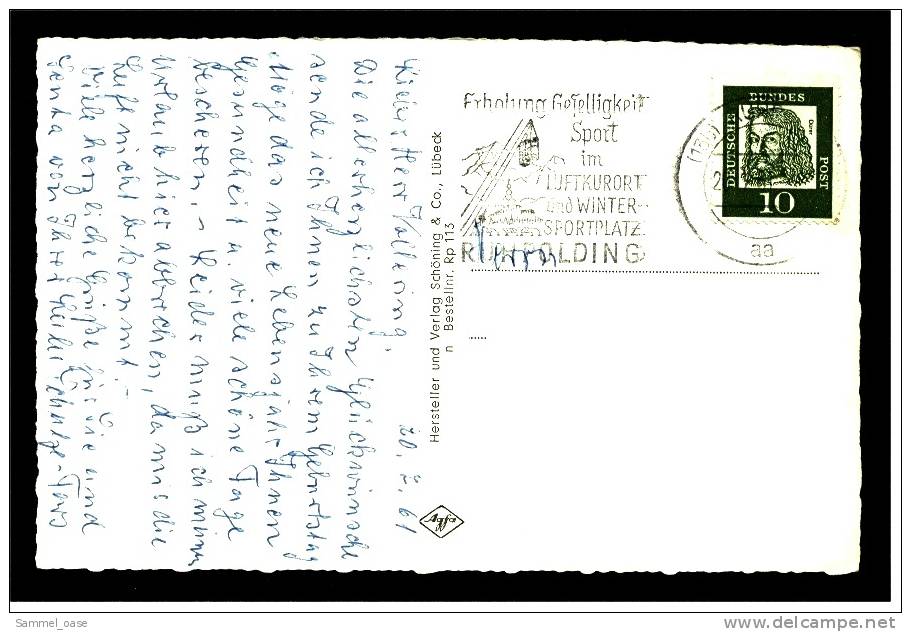 Lieber Herr Vollering, 20. 2. 61
Die allerherzlichsten Glückwünsche
sende ich Ihnen zu Ihrem Geburtstag
Möge das neue Lebensjahr Ihnen
Gesundheit u. viele schöne Tage
bescheren. – Leider muß ich meinen
Urlaub hier abbrechen, da mir die
Luft nicht bekommt.
Viele herzliche Grüße für Sie und
Gerda von Ihrer
Hersteller und Verlag Schöning & Co., Lübeck
n Bestellnr. Rp 113
Agfa
Erholung Geselligkeit
Sport
im
LUFTKURORT
und WINTER-
SPORTPLATZ
RUHPOLDING
Herrn
aa
DEUTSCHE
BUNDES
POST
Dürer
10
Sammel_oase
www.delcampe.net